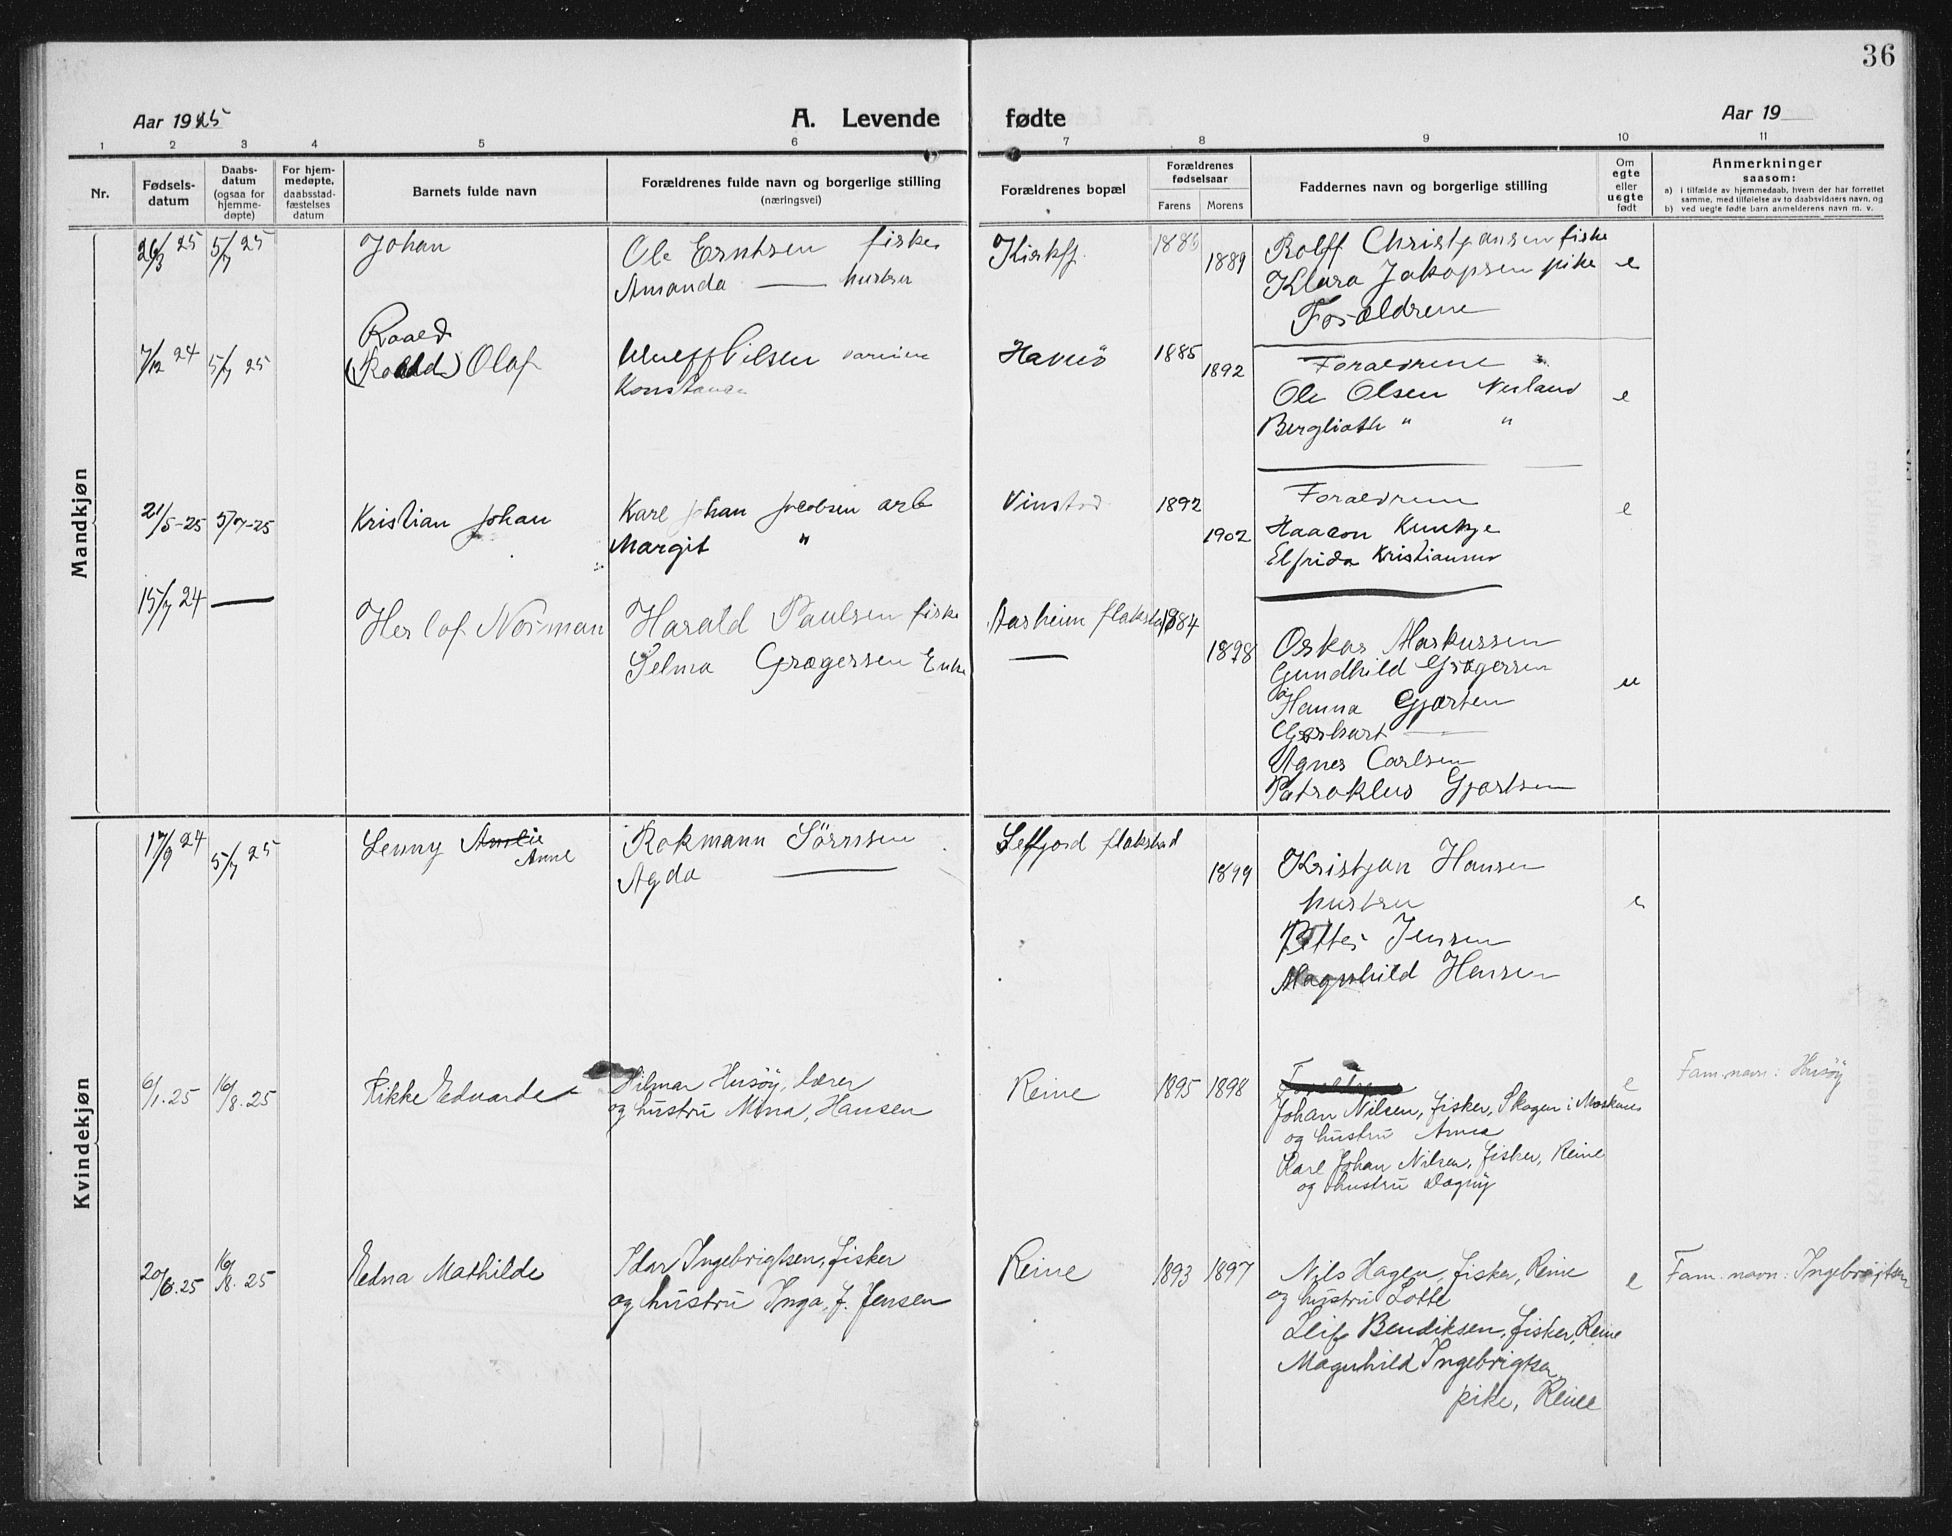 36
Aar 1925
A. Levende fødte
Aar 19
1 2 3 4 5 6 7 8 9 10 11
Nr.
Fødsels-
datum
Daabs-
datum
(ogsaa for
hjemme-
døpte)
For hjem-
medøpte,
daabsstad-
fæstelses
datum
Barnets fulde navn
Forældrenes fulde navn og borgerlige stilling
(næringsvei)
Forældrenes bopæl
Forældrenes
fødselsaar
Farens Morens
Faddernes navn og borgerlige stilling
Om
egte
eller
uegte
født
Anmerkninger
saasom:
a) i tilfælde av hjemmedaab, hvem der har forrettet
samme, med tilføielse av to daabsvidners navn, og
b) ved uegte fødte barn anmelderens navn m. v.
Mandkjøn
26/3 25 5/7 25
Johan
Ole Erntsen fisker
Amanda — hustru
1886
1889
Rolff Christjansen fisker
Klara Jakopsen pike
Forældrene
e
7/12 24 5/7 25
Roald
(Roald) Olaf
Konstance
Havnö
1885
1892
Forældrene
Ole Olsen Nesland
Berglioth " "
e
21/5-25 5/7-25
Kristian Johan
Karl Johan Jacobsen arb
Margit "
Vinstad
1892
1902
Forældrene
Haacon
Elfrida
e
15/7 24 —
Herlof Norman
Harald Paulsen fisker
Selma Grægersen Enke
Aasheim flakstad
—
1884
1898
Oskar Markussen
Gundhild Grægersen
Hanna Gjærtsen
Gerhart —
Agnes Carlsen
Patroklus Gjærtsen
u
Kvindekjøn
17/9 24 5/7 25
Lenny Amlie
Anne
Rokmann Sörnsen
Agda —
Selfjord flakstad
1899
Kristjan Hansen
hustru
Petter Jensen
Magnhild Hansen
e
6/1.25 16/8.25
Rikke Edvarde
Hilmar Husöy, lærer
og hustru Mina, Hansen
Reine
1895 1898
Johan Nilsen, fisker, Skogen i Moskenes
og hustru Anna
Karl Johan Nilsen, fisker, Reine
og hustru Dagny
e
Fam.navn: Husöy
20/6.25 16/8.25
Edna Mathilde
Idar Ingebrigtsen, fisker
og hustru Inga, f. Jensen
Reine
1893 1897
Nils Hagen, fisker, Reine
og hustru Lotte
Leif Bendiksen, fisker, Reine
Magnhild Ingebrigtsen
pike, Reine
e
Fam. navn: Ingebrigtsen